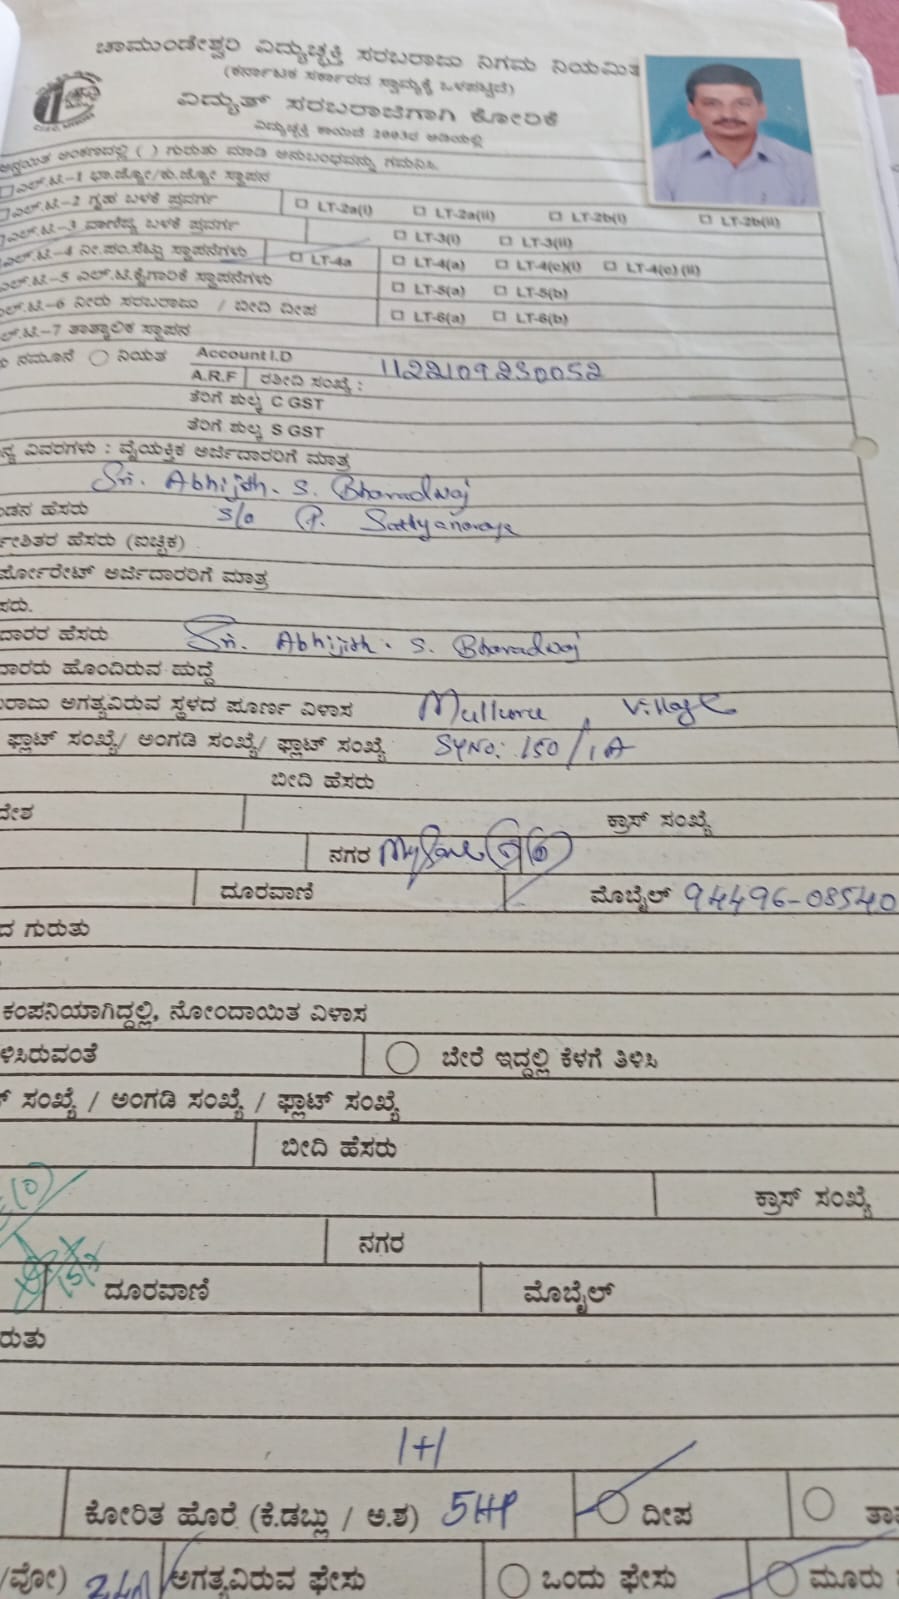 ಚಾಮುಂಡೇಶ್ವರಿ ವಿದ್ಯುಚ್ಛಕ್ತಿ ಸರಬರಾಜು ನಿಗಮ ನಿಯಮಿತ
(ಕರ್ನಾಟಕ ಸರ್ಕಾರದ ಸ್ವಾಮ್ಯಕ್ಕೆ ಒಳಪಟ್ಟಿದೆ)
ವಿದ್ಯುತ್ ಸರಬರಾಜಿಗಾಗಿ ಕೋರಿಕೆ
ವಿದ್ಯುಚ್ಛಕ್ತಿ ಕಾಯಿದೆ 2003ರ ಅಡಿಯಲ್ಲಿ
ಅನ್ವಯಿತ ಅಂಕಣದಲ್ಲಿ ( ) ಗುರುತು ಮಾಡಿ ಅನುಬಂಧವನ್ನು ಗಮನಿಸಿ.
ಎಲ್.ಟಿ.-1 ಭಾ.ಜ್ಯೋ/ಕು.ಜ್ಯೋ ಸ್ಥಾಪನ
ಎಲ್.ಟಿ.-2 ಗೃಹ ಬಳಕೆ ಪ್ರವರ್ಗ LT-2a(i) LT-2a(ii) LT-2b(i) LT-2b(ii)
ಎಲ್.ಟಿ.-3 ವಾಣಿಜ್ಯ ಬಳಕೆ ಪ್ರವರ್ಗ LT-3(i) LT-3(ii)
ಎಲ್.ಟಿ.-4 ನೀ.ಪಂ.ಸೆಟ್ಟು ಸ್ಥಾಪನೆಗಳು LT-4a LT-4(a) LT-4(c)(i) LT-4(c) (ii)
ಎಲ್.ಟಿ.-5 ಎಲ್.ಟಿ.ಕೈಗಾರಿಕೆ ಸ್ಥಾಪನೆಗಳು LT-5(a) LT-5(b)
ಎಲ್.ಟಿ.-6 ನೀರು ಸರಬರಾಜು / ಬೀದಿ ದೀಪ LT-6(a) LT-6(b)
ಎಲ್.ಟಿ.-7 ತಾತ್ಕಾಲಿಕ ಸ್ಥಾಪನ
ನಮೂನೆ ನಿಯತ Account I.D
A.R.F ರಶೀದಿ ಸಂಖ್ಯೆ : 1122109230052
ತೆರಿಗೆ ಶುಲ್ಕ C GST
ತೆರಿಗೆ ಶುಲ್ಕ S GST
ವಿವರಗಳು : ವೈಯಕ್ತಿಕ ಅರ್ಜಿದಾರರಿಗೆ ಮಾತ್ರ
Sri. Abhijith. S. Bharadwaj
ಹೆಸರು S/o P.
ಹೆಸರು (ಐಚ್ಛಿಕ)
ಅರ್ಜಿದಾರರಿಗೆ ಮಾತ್ರ
ಹೆಸರು Sri. Abhijith. S. Bharadwaj
ಹೊಂದಿರುವ ಹುದ್ದೆ
ಅಗತ್ಯವಿರುವ ಸ್ಥಳದ ಪೂರ್ಣ ವಿಳಾಸ Mulluru Village
ಫ್ಲಾಟ್ ಸಂಖ್ಯೆ/ ಅಂಗಡಿ ಸಂಖ್ಯೆ/ ಫ್ಲಾಟ್ ಸಂಖ್ಯೆ SyNo: 150/1A
ಬೀದಿ ಹೆಸರು
ಕ್ರಾಸ್ ಸಂಖ್ಯೆ
ನಗರ Mysore
ದೂರವಾಣಿ ಮೊಬೈಲ್ 94496-08540
ಗುರುತು
ಕಂಪನಿಯಾಗಿದ್ದಲ್ಲಿ, ನೋಂದಾಯಿತ ವಿಳಾಸ
ಬೇರೆ ಇದ್ದಲ್ಲಿ ಕೆಳಗೆ ತಿಳಿಸಿ
ಸಂಖ್ಯೆ / ಅಂಗಡಿ ಸಂಖ್ಯೆ / ಫ್ಲಾಟ್ ಸಂಖ್ಯೆ
ಬೀದಿ ಹೆಸರು
ಕ್ರಾಸ್ ಸಂಖ್ಯೆ
ನಗರ
ದೂರವಾಣಿ ಮೊಬೈಲ್
1+1
ಕೋರಿತ ಹೊರೆ (ಕೆ.ಡಬ್ಲು / ಅ.ಶ) 5HP ದೀಪ
ಅಗತ್ಯವಿರುವ ಫೇಸು ಒಂದು ಫೇಸು ಮೂರು